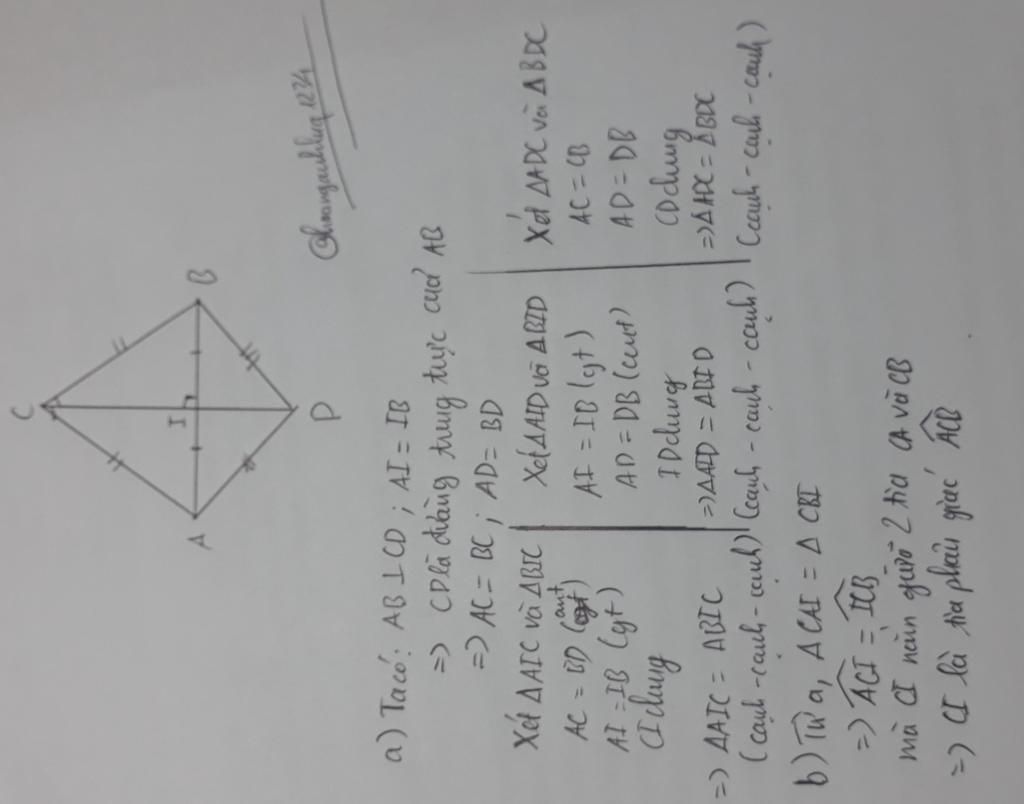 C
A
I
B
D
@hoanganhhuy1234
a) Ta có: AB ⊥ CD ; AI = IB
=> CD là đường trung trực của AB
=> AC = BC ; AD = BD
Xét ΔAIC và ΔBIC
AC = BD (cmt)
AI = IB (gt)
CI chung
=> ΔAIC = ΔBIC
(cạnh - cạnh - cạnh)
Xét ΔAID và ΔBID
AI = IB (gt)
AD = DB (cmt)
ID chung
=> ΔAID = ΔBID
(cạnh - cạnh - cạnh)
Xét ΔADC và ΔBDC
AC = CB
AD = DB
CD chung
=> ΔADC = ΔBDC
(cạnh - cạnh - cạnh)
b) Từ a, ΔCAI = ΔCBI
=> ACI = ICB
mà CI nằm giữa 2 tia CA và CB
=> CI là tia phân giác ACB